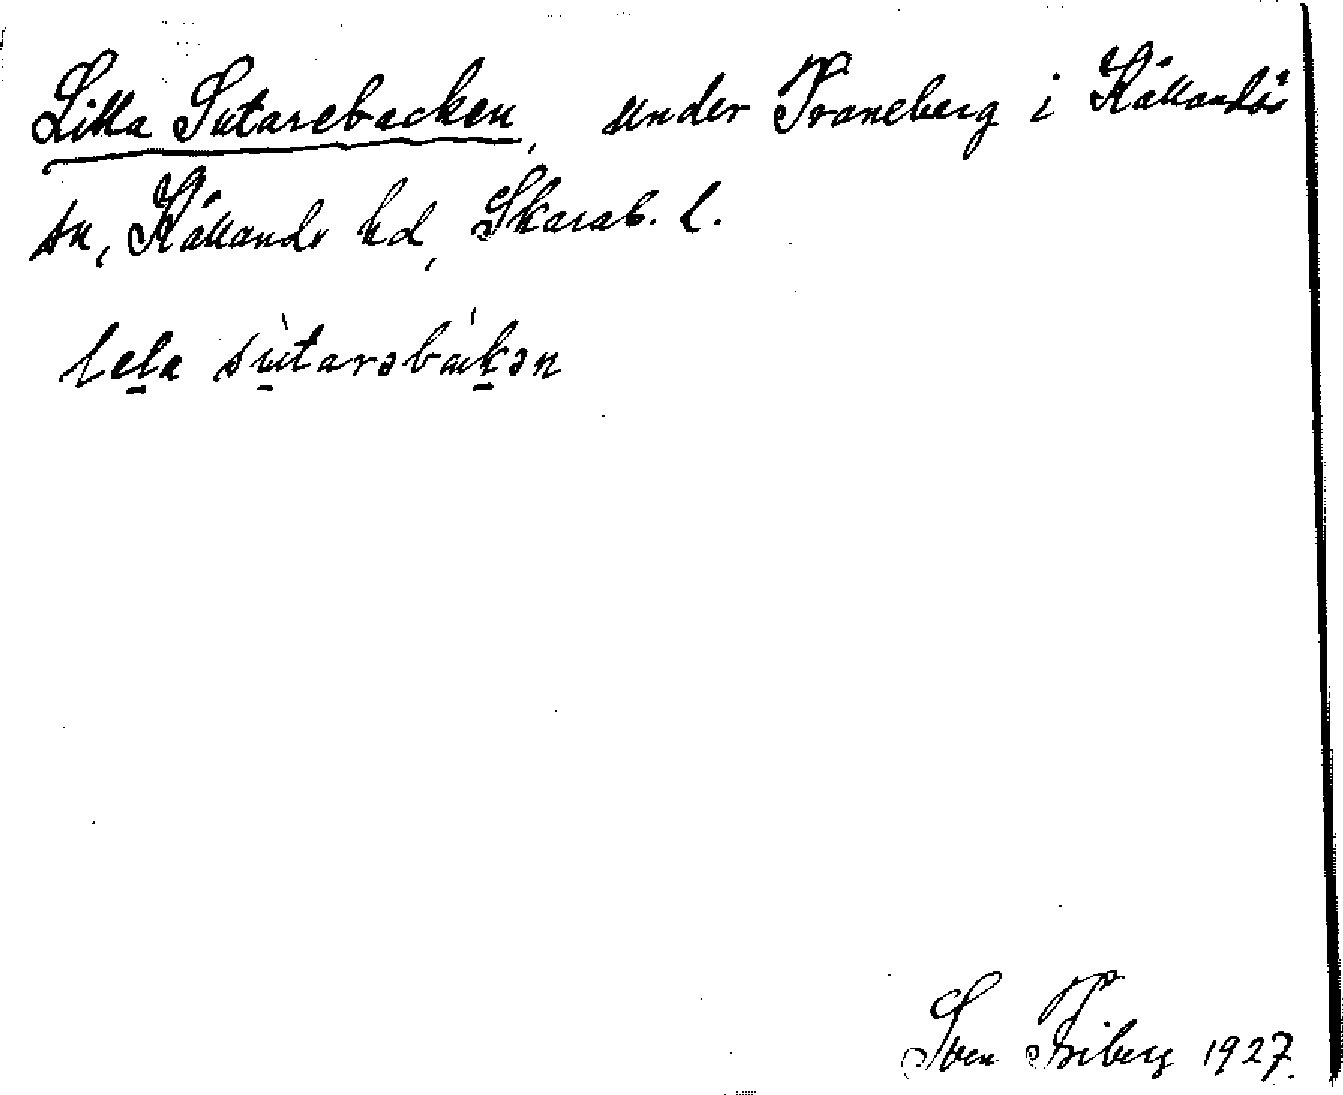 Lilla Sutarebacken, under Traneberg i Kållandsö
sn, Kållands hd, Skarab. l.
lela sùtarəbákən
Sven Friberg 1927.